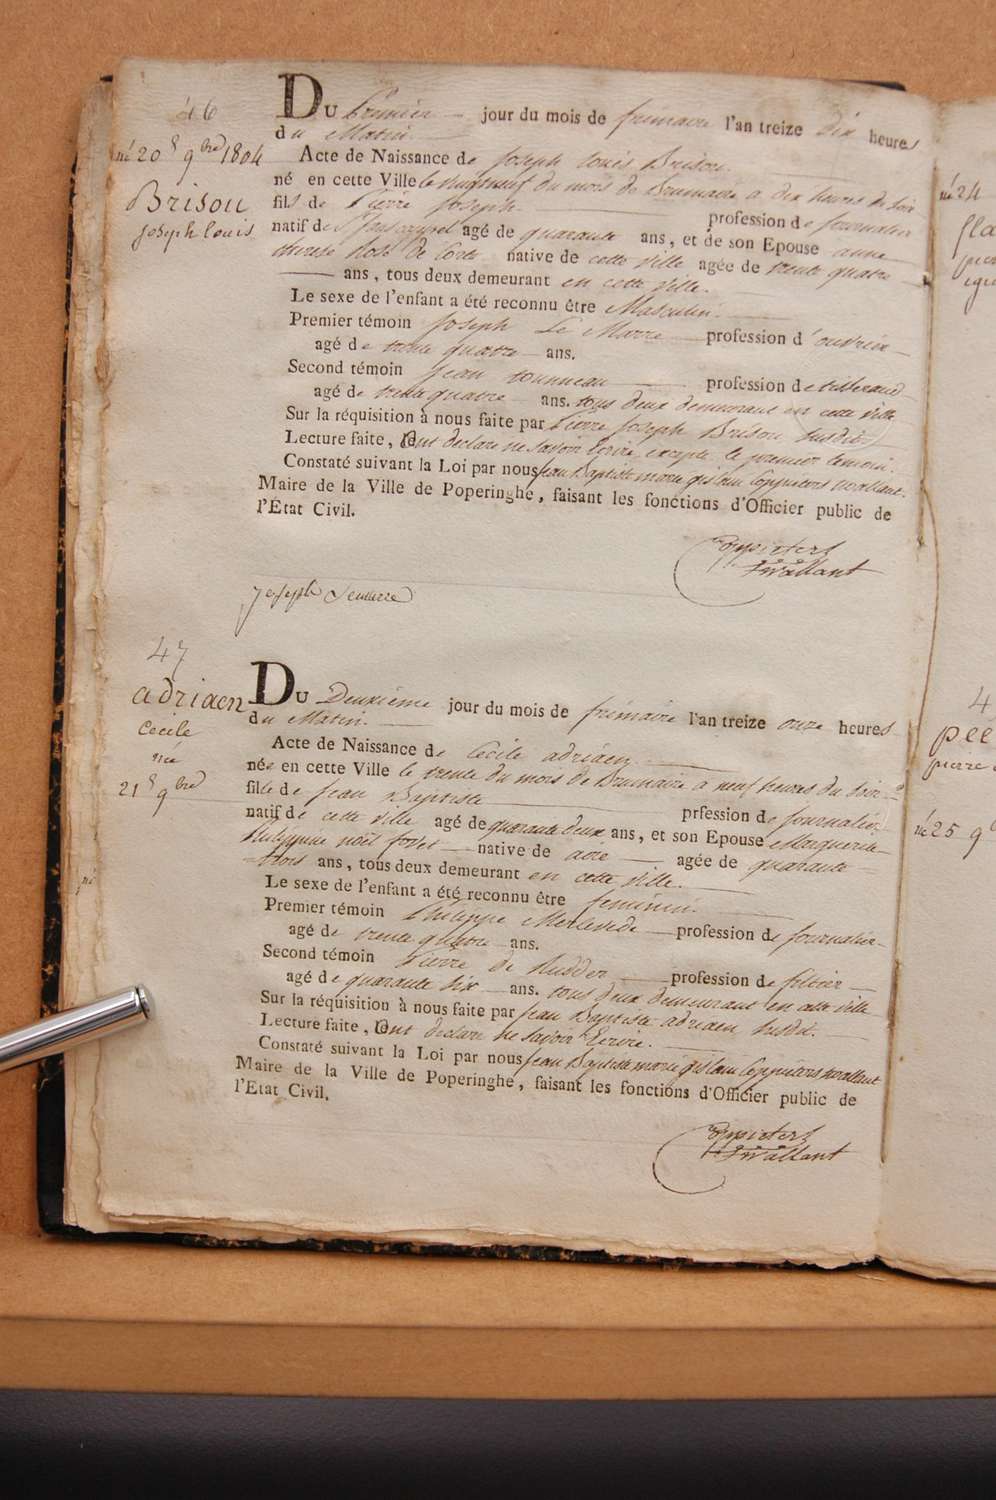 46
né 20 9bre 1804
Brisou
joseph louis
Du Premier jour du mois de frimaire l'an treize Dix heures
du Matin
Acte de Naissance de Joseph Louis Brisou.
né en cette Ville le vingt neuf du mois de Brumaire a dix heures du soir
fils de Pierre Joseph profession de journalier
natif de agé de quarante ans, et de son Epouse anne
therese Rose de Corte native de cette ville agée de trente quatre
ans, tous deux demeurant en cette ville.
Le sexe de l'enfant a été reconnu être Masculin.
Premier témoin Joseph Le Marre profession d'ouvrier
agé de trente quatre ans.
Second témoin Jean tonneau profession de tisserand
agé de trente quatre ans. tous deux demeurant en cette ville
Sur la réquisition à nous faite par Pierre Joseph Brisou susdit
Lecture faite, ont declaré ne savoir Ecrire, excepté le premier temoin.
Constaté suivant la Loi par nous Jean Baptiste marie gislain Coppieters wallant.
Maire de la Ville de Poperinghe, faisant les fonctions d'Officier public de
l'État Civil.
Coppieters
Wallant
Joseph
47
adriaen
Cecile
née
21 9bre
Du Deuxième jour du mois de frimaire l'an treize onze heures
du Matin.
Acte de Naissance de Cecile adriaen
née en cette Ville le trente du mois de Brumaire a neuf heures du soir
fille de Jean Baptiste prfession de journalier
natif de cette ville agé de quarante deux ans, et son Epouse Marguerite
Philippine noël native de aire agée de quarante
trois ans, tous deux demeurant en cette ville.
Le sexe de l'enfant a été reconnu être feminin.
Premier témoin Philippe profession de journalier
agé de trente quatre ans.
Second témoin Pierre de Rudder profession de
agé de quarante six ans. tous deux demeurant en cette ville
Sur la réquisition à nous faite par Jean Baptiste adriaen susdit.
Lecture faite, ont declaré ne savoir Ecrire.
Constaté suivant la Loi par nous Jean Baptiste marie gislain Coppieters wallant
Maire de la Ville de Poperinghe, faisant les fonctions d'Officier public de
l'Etat Civil.
Coppieters
Wallant
né 24
fla
né 25 9